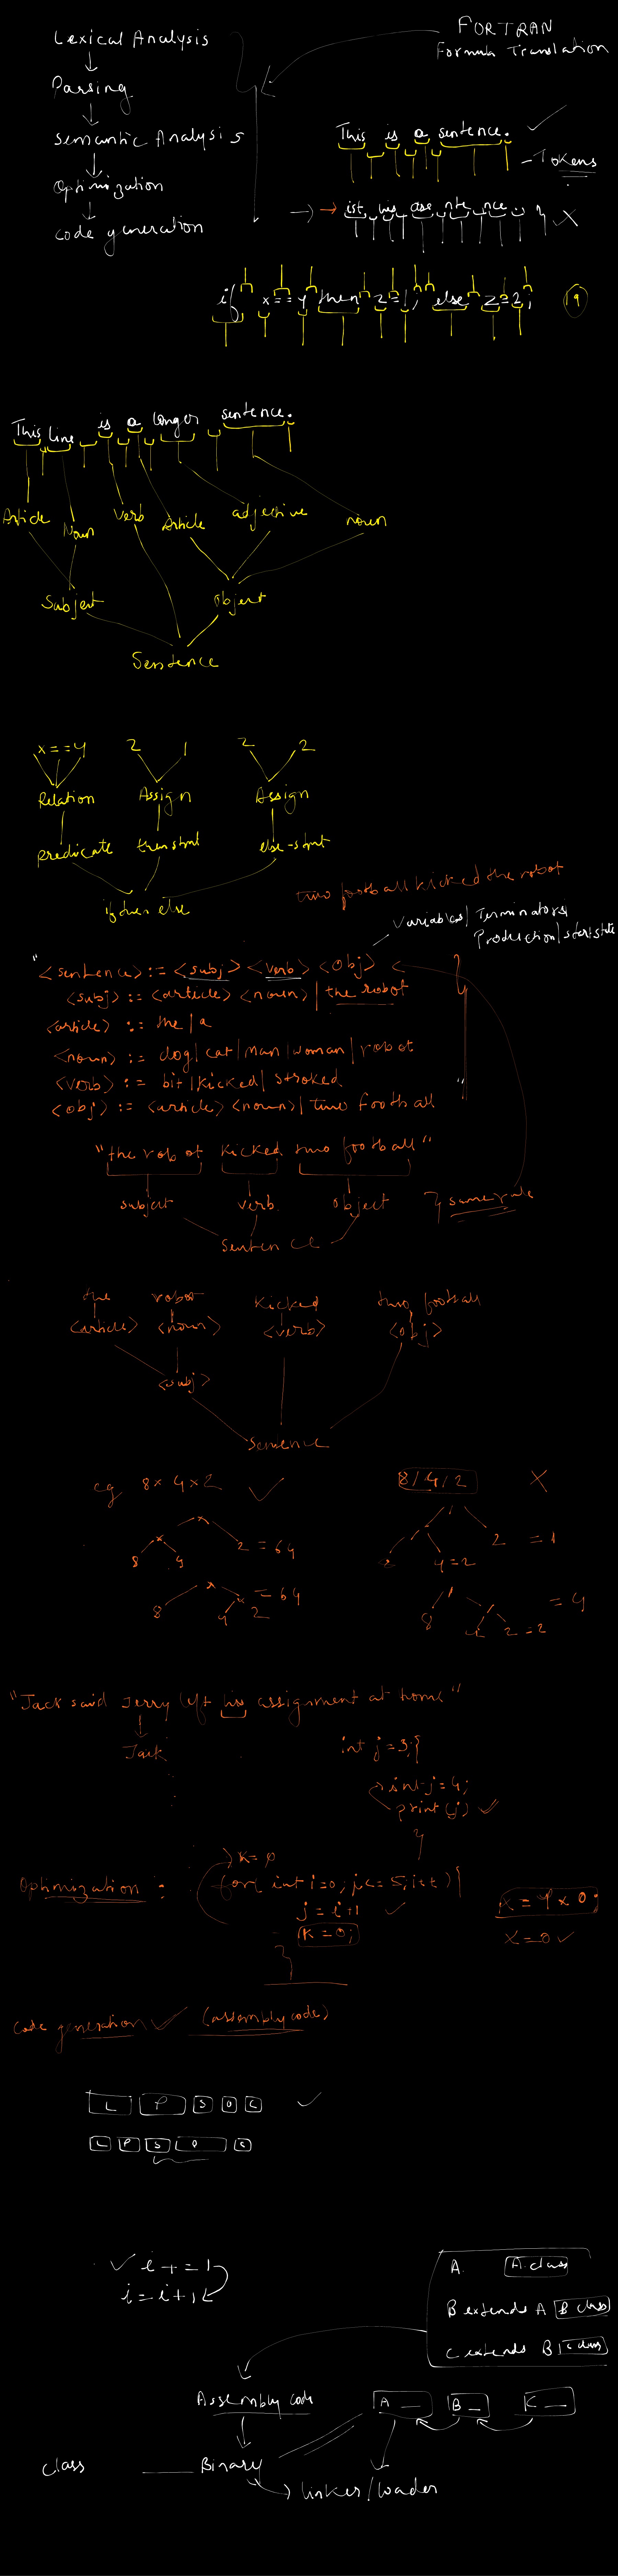 Lexical Analysis
FORTRAN
Formula Translation
Parsing
Semantic Analysis
This is a sentence.
- Tokens
Optimization
ist his ase nte nce
code generation
if x == y then z = 1; else z = 2;
This line is a longer sentence.
Article
Noun
verb
Article
adjective
noun
Subject
Object
Sentence
x = = y
2 1
2 2
Relation
Assign
Assign
predicate
then stmt
else-stmt
if then else
two football kicked the robot
Variables/ Terminators/
Production/startstate
"<sentence> := <subj> <verb> <obj>
<subj> := <article> <noun> | the robot
<article> := the | a
<noun> := dog | cat | man | woman | robot
<verb> := bit | kicked | stroked
<obj> := <article> <noun> | two football "
"the robot kicked two football"
subject verb object } same rule
Sentence
the robot kicked two football
<article> <noun> <verb> <obj>
<subj>
Sentence
eg 8 x 4 x 2
8 / 4 / 2
x
/
x
/
8 4 2 = 64
4 = 2 2 = 1
x = 64
/ = 4
8 4 2
8 4 2 = 2
"Jack said Jerry left his assignment at home"
Jack
int j = 3; {
int j = 4;
print (j)
}
k = 0
Optimization :
j = i + 1
k = 0;
}
x = 0
Code generation (assembly code)
L P S O C
L P S O C
i + = 1
i = i + 1
A. A class
B extends A B class
C extends B C class
Assembly code
A B K
Class
Binary
linker / loader